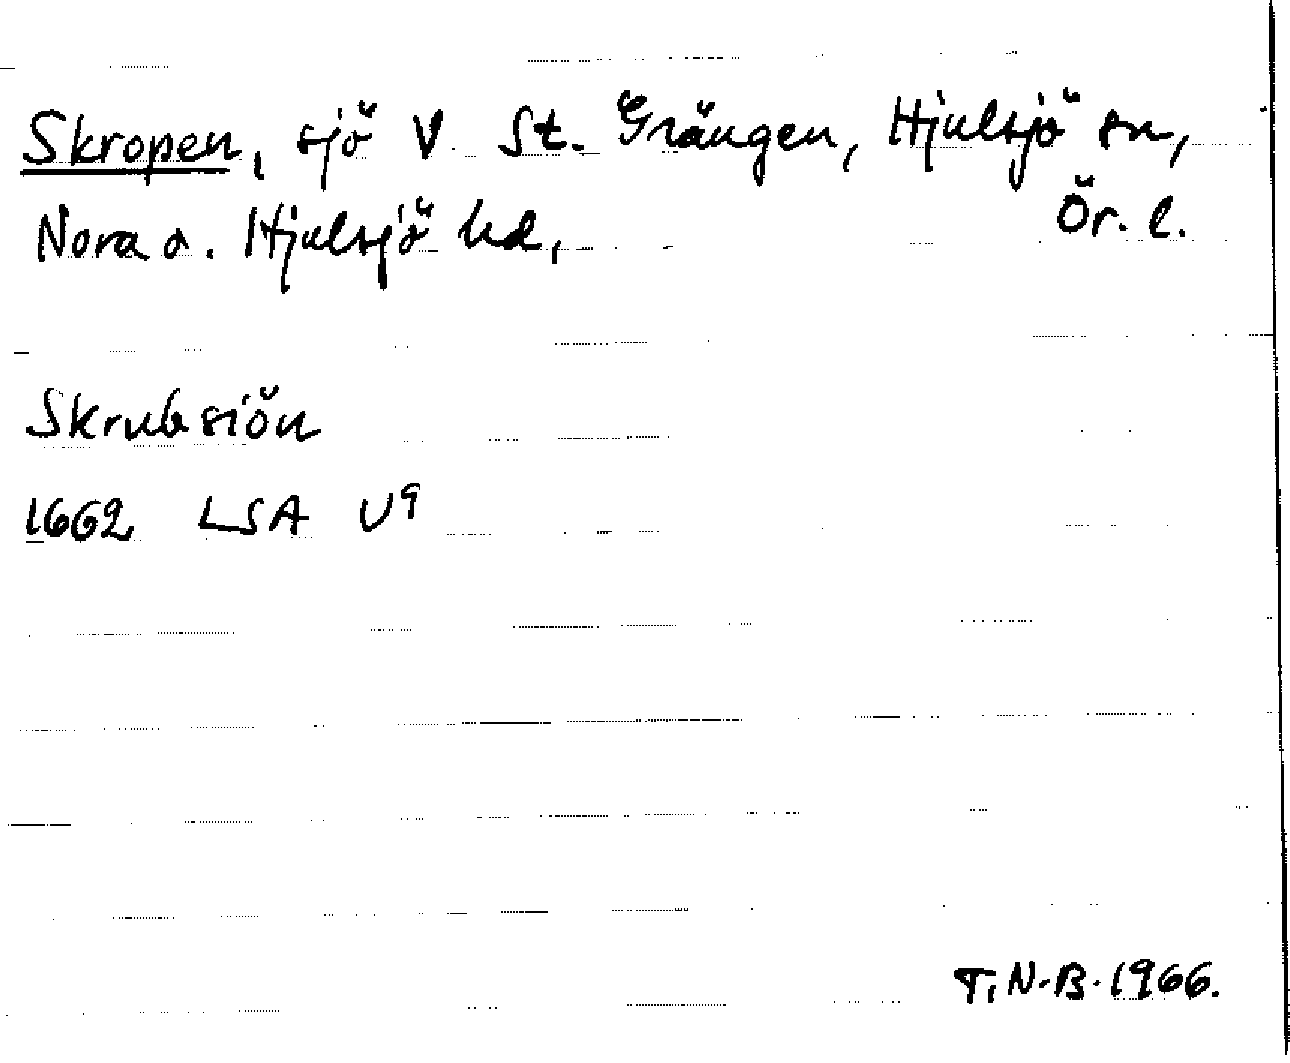 Skropen, sjö V St. Grängen, Hjulsjö sn,
Nora o. Hjulsjö hd, Ör. l.
Skrubsiön
1662 LSA U9
T.N.B. 1966.